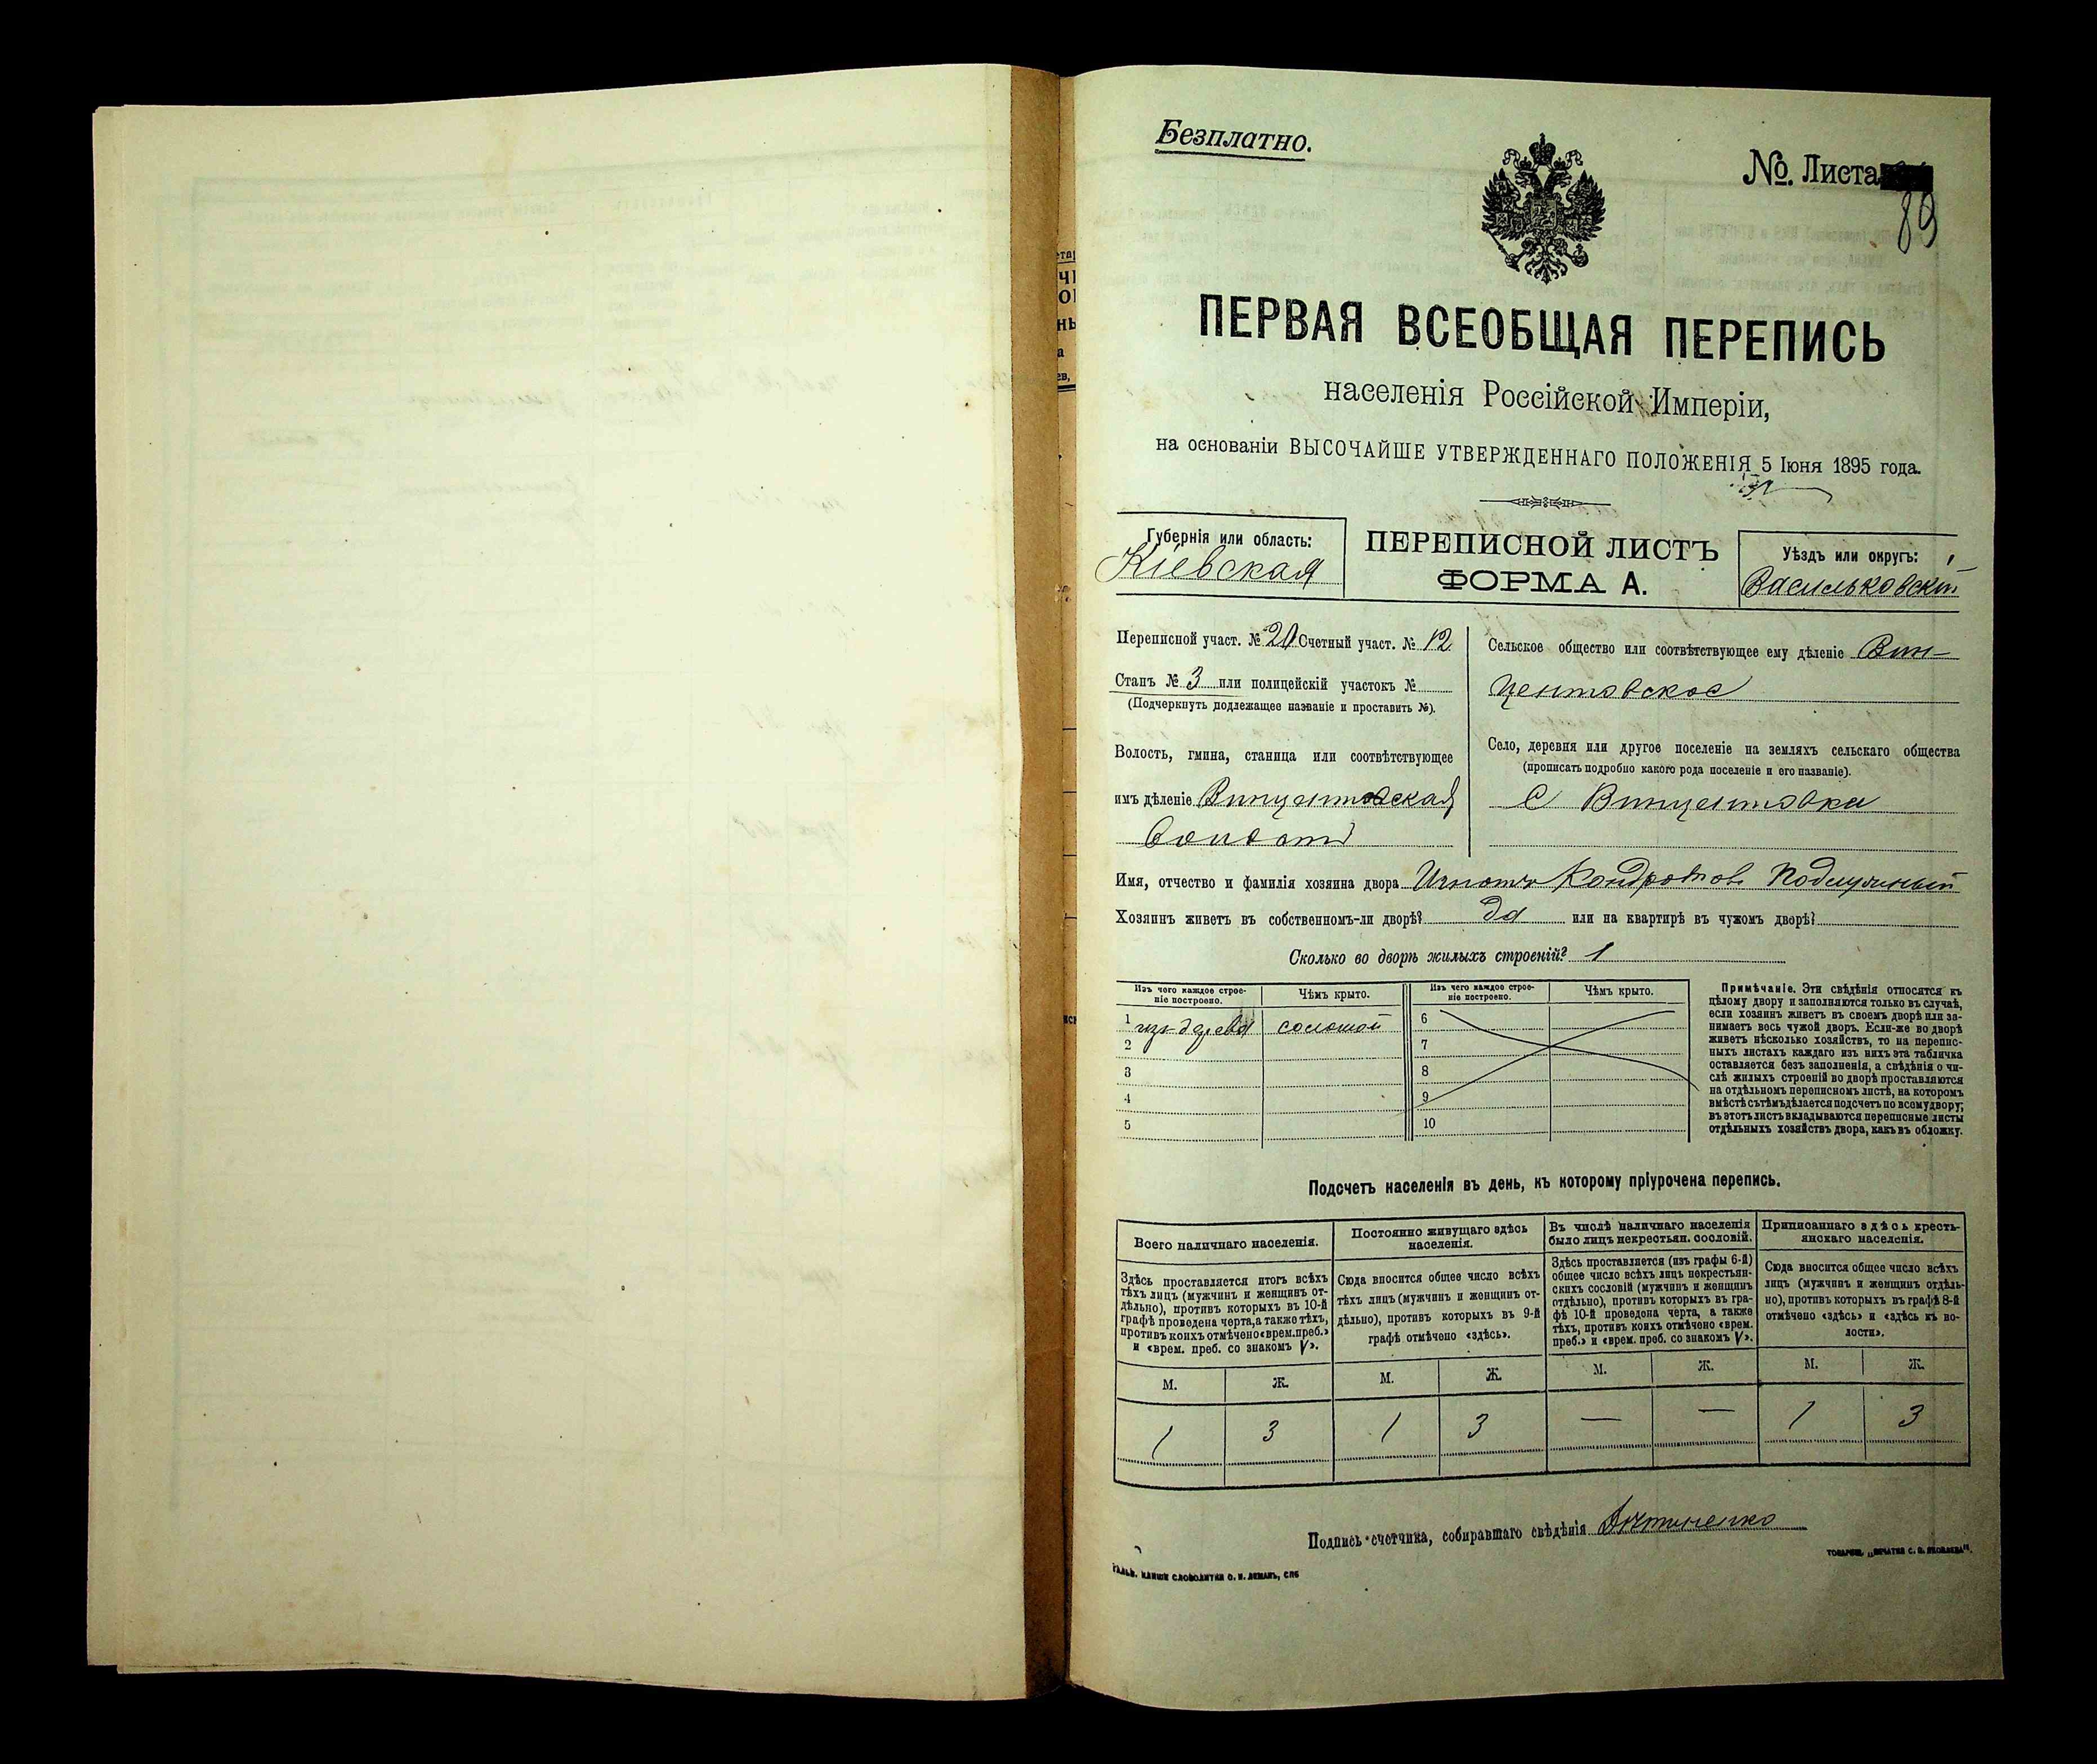 Безплатно.
№. Листа
89
ПЕРВАЯ ВСЕОБЩАЯ ПЕРЕПИСЬ
населенія Россійской Имперіи,
на основаніи ВЫСОЧАЙШЕ УТВЕРЖДЕННАГО ПОЛОЖЕНІЯ 5 Іюня 1895 года.
Губернія или область:
Кіевская
ПЕРЕПИСНОЙ ЛИСТЪ
ФОРМА А.
Уѣздъ или округъ:
Васильковскій
Переписной участ. № 20 Счетный участ. № 12
Станъ № 3 или полицейскій участокъ №
(Подчеркнуть подлежащее названіе и проставить №).
Волость, гмина, станица или соотвѣтствующее
имъ дѣленіе Винцентовская
волость
Сельское общество или соотвѣтствующее ему дѣленіе Вин-
центовское
Село, деревня или другое поселеніе на земляхъ сельскаго общества
(прописать подробно какого рода поселеніе и его названіе).
С Винцентовка
Имя, отчество и фамилія хозяина двора Игнатъ Кондратовъ
Хозяинъ живетъ въ собственномъ-ли дворѣ? да или на квартирѣ въ чужомъ дворѣ?
Сколько во дворѣ жилыхъ строеній? 1
Изъ чего каждое строе-
ніе построено.
Чѣмъ крыто.
1 изъ дерева соломой
2
3
4
5
Изъ чего каждое строе-
ніе построено.
Чѣмъ крыто.
6
7
8
9
10
Примѣчаніе. Эти свѣдѣнія относятся къ
цѣлому двору и заполняются только въ случаѣ,
если хозяинъ живетъ въ своемъ дворѣ или за-
нимаетъ весь чужой дворъ. Если-же во дворѣ
живетъ нѣсколько хозяйствъ, то на перепис-
ныхъ листахъ каждаго изъ нихъ эта табличка
оставляется безъ заполненія, а свѣдѣнія о чи-
слѣ жилыхъ строеній во дворѣ проставляются
на отдѣльномъ переписномъ листѣ, на которомъ
вмѣстѣ съ тѣмъ дѣлается подсчетъ по всему двору;
въ этотъ листъ вкладываются переписные листы
отдѣльныхъ хозяйствъ двора, какъ въ обложку.
Подсчетъ населенія въ день, къ которому пріурочена перепись.
Всего наличнаго населенія.
Здѣсь проставляется итогъ всѣхъ
тѣхъ лицъ (мужчинъ и женщинъ от-
дѣльно), противъ которыхъ въ 10-й
графѣ проведена черта, а также тѣхъ,
противъ коихъ отмѣчено «врем. преб.»
и «врем. преб. со знакомъ V».
М. Ж.
1 3
Постоянно живущаго здѣсь
населенія.
Сюда вносится общее число всѣхъ
тѣхъ лицъ (мужчинъ и женщинъ от-
дѣльно), противъ которыхъ въ 9-й
графѣ отмѣчено «здѣсь».
М. Ж.
1 3
Въ числѣ наличнаго населенія
было лицъ некрестьян. сословій.
Здѣсь проставляется (изъ графы 6-й)
общее число всѣхъ лицъ некрестьян-
скихъ сословій (мужчинъ и женщинъ
отдѣльно), противъ которыхъ въ гра-
фѣ 10-й проведена черта, а также
тѣхъ, противъ коихъ отмѣчено «врем.
преб.» и «врем. преб. со знакомъ V».
М. Ж.
— —
Приписаннаго здѣсь кресть-
янскаго населенія.
Сюда вносится общее число всѣхъ
лицъ (мужчинъ и женщинъ отдѣль-
но), противъ которыхъ въ графѣ 8-й
отмѣчено «здѣсь» и «здѣсь къ во-
лости».
М. Ж.
1 3
Подпись счетчика, собиравшаго свѣдѣнія
ГАЛЬВ. КЛИШЕ СЛОВОЛИТНИ О. И. ЛЕМАНЪ, СПБ
ТОВАРИЩ. „ПЕЧАТНЯ С. П. ЯКОВЛЕВА".